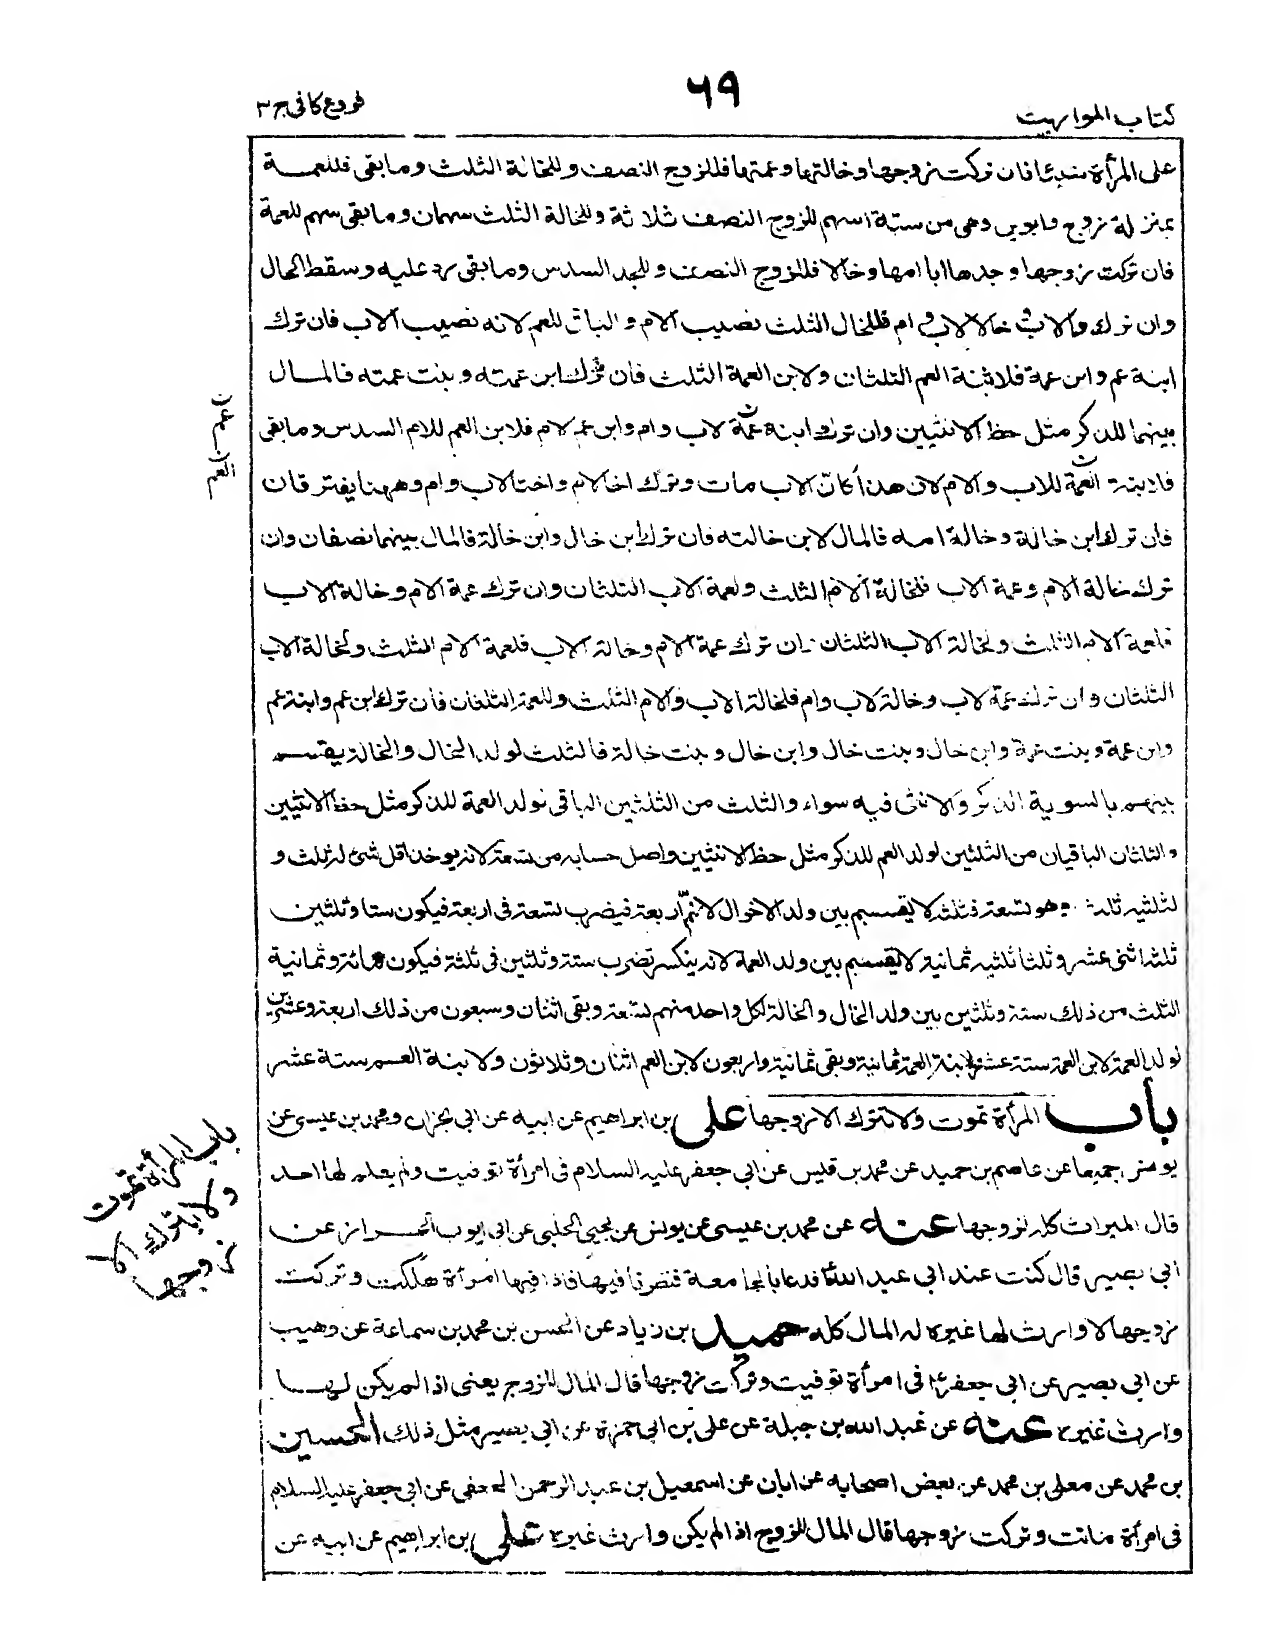 كتاب المواريث
٦٩
فروع كافى ج ٣
على المرأة شيئا فان تركت زوجها وخالتها وعمتها فللزوج النصف وللخالة الثلث وما بقى فللعمة
بمنزلة زوج وابوين وهى من ستة اسهم للزوج النصف ثلاثة وللخالة الثلث سهمان وما بقى سهم للعمة
فان تركت زوجها وجدها ابا امها وخالا فللزوج النصف وللجد السدس وما بقى رد عليه وسقط الخال
وان ترك خالا لاب وام فللخال الثلث نصيب الام والباقى للعم لانه نصيب الاب فان ترك
ابنة عم وابن عمة فلابنة العم الثلثان ولابن العمة الثلث فان ترك ابن عمته وبنت عمته فالمال
بينهما للذكر مثل حظ الانثيين وان ترك ابنة عمة لاب وام وابن عم لام فلابن العم للام السدس وما بقى
فلابنة العمة للاب والام لان هذا كان الاب مات وترك اخا لام واختا لاب وام وههنا يفترقان
فان ترك ابن خالة وخالة امه فالمال لابن خالته فان ترك ابن خال وابن خالة فالمال بينهما نصفان وان
ترك خالة الام وعمة الاب فلخالة الام الثلث ولعمة الاب الثلثان وان ترك عمة الام وخالة الاب
فلعمة الام الثلث ولخالة الاب الثلثان وان ترك عمة الام وخالة الاب فلعمة الام الثلث ولخالة الاب
الثلثان وان ترك عمة لاب وخالة لاب وام فلخالة الاب والام الثلث وللعمة الثلثان فان ترك ابن عم وابنة عم
وابن عمة وبنت عمة وابن خال وبنت خال وابن خال وبنت خالة فالثلث لولد الخال والخالة يقسم
بينهم بالسوية الذكر والانثى فيه سواء والثلث من الثلثين الباقى لولد العمة للذكر مثل حظ الانثيين
والثلثان الباقيان من الثلثين لولد العم للذكر مثل حظ الانثيين واصل حسابه من تسعة لانه يوخذ اقل شئ له ثلث و
لثلثيه ثلث وهو تسعة فثلثه لا يقسم بين ولد الاخوال لانهم اربعة فيضرب تسعة فى اربعة فيكون ستا وثلثين
ثلثه اثنى عشر وثلثا ثلثيه ثمانية لا يقسم بين ولد العمة لانه ينكسر تضرب ستة وثلثين فى ثلثة فيكون مائة وثمانية
الثلث من ذلك ستة وثلثين بين ولد الخال والخالة لكل واحد منهم تسعة وبقى اثنان وسبعون من ذلك اربعة وعشرين
لولد العمة لابن العمة ستة عشر ولابنة العمة ثمانية وبقى ثمانية واربعون لابن العم اثنان وثلاثون ولابنة العم ستة عشر
باب المرأة تموت ولا تترك الا زوجها على بن ابراهيم عن ابيه عن ابى نجران ومحمد بن عيسى عن
يونس جميعا عن عاصم بن حميد عن محمد بن قيس عن ابى جعفر عليه السلام فى امرأة توفيت ولم يعلم لها احد
قال الميراث كله لزوجها عنه عن محمد بن عيسى عن يونس عن يحيى الحلبى عن ابى ايوب الخراز عن
ابى بصير قال كنت عند ابى عبد الله فدعا بالجامعة فنظرنا فيها فاذا فيها امرأة هلكت وتركت
زوجها لا وارث لها غيره له المال كله حميد بن زياد عن الحسن بن محمد بن سماعة عن وهيب
عن ابى بصير عن ابى جعفر ع فى امرأة توفيت وتركت زوجها قال المال للزوج يعنى اذا لم يكن لها
وارث غيره عنه عن عبد الله بن جبلة عن على بن ابى حمزة عن ابى بصير مثل ذلك الحسين
بن محمد عن معلى بن محمد عن بعض اصحابه عن ابان عن اسمعيل بن عبد الرحمن الجعفى عن ابى جعفر عليه السلام
فى امرأة ماتت وتركت زوجها قال المال للزوج اذا لم يكن وارث غيره على بن ابراهيم عن ابيه عن
باب المرأة تموت
ولا يترك الا
زوجها